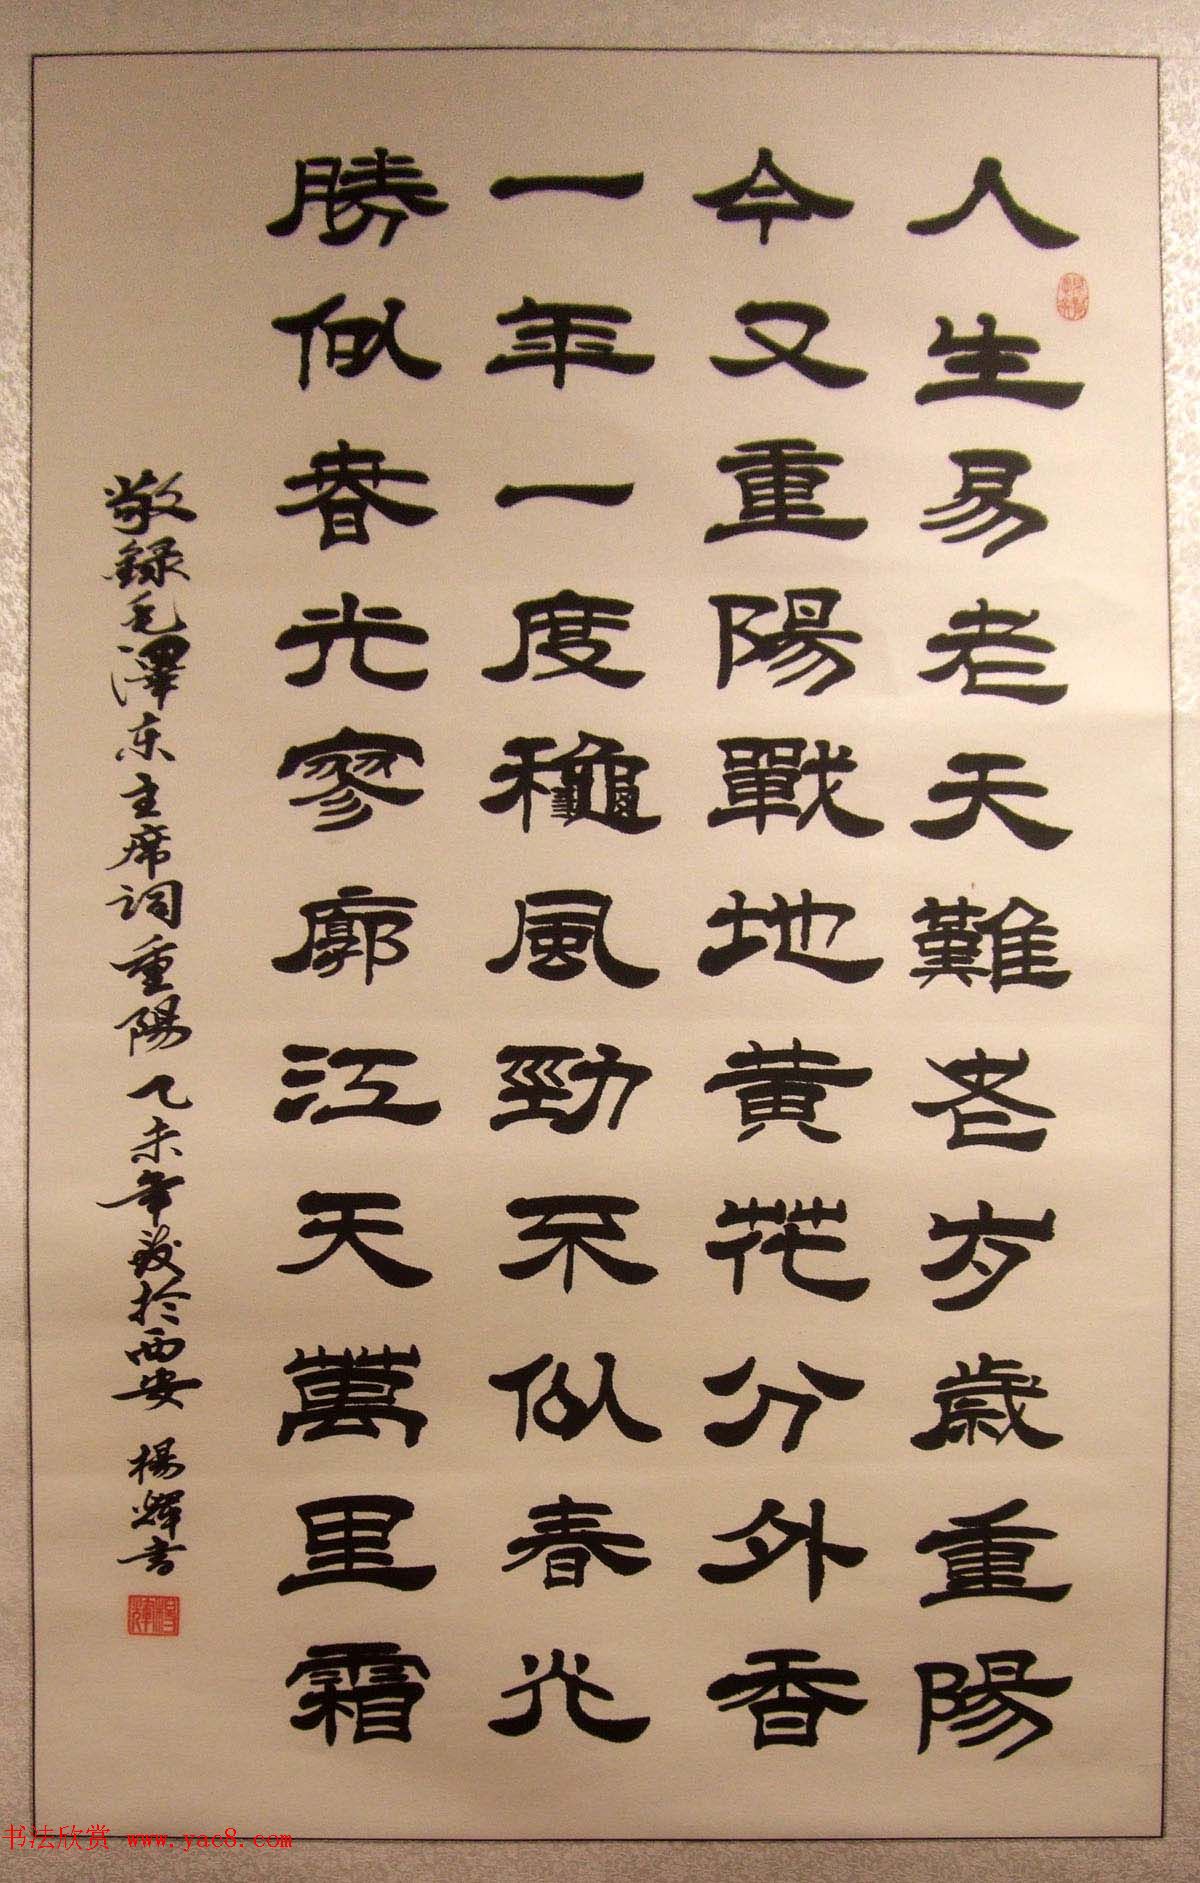 人生易老天難老岁歲重陽
今又重陽戰地黄花分外香
一年一度龝風勁不似春光
勝似春光寥廓江天萬里霜
敬録毛澤东主席词重陽 乙未年於西安 楊輝書
书法欣赏 www.yac8.com